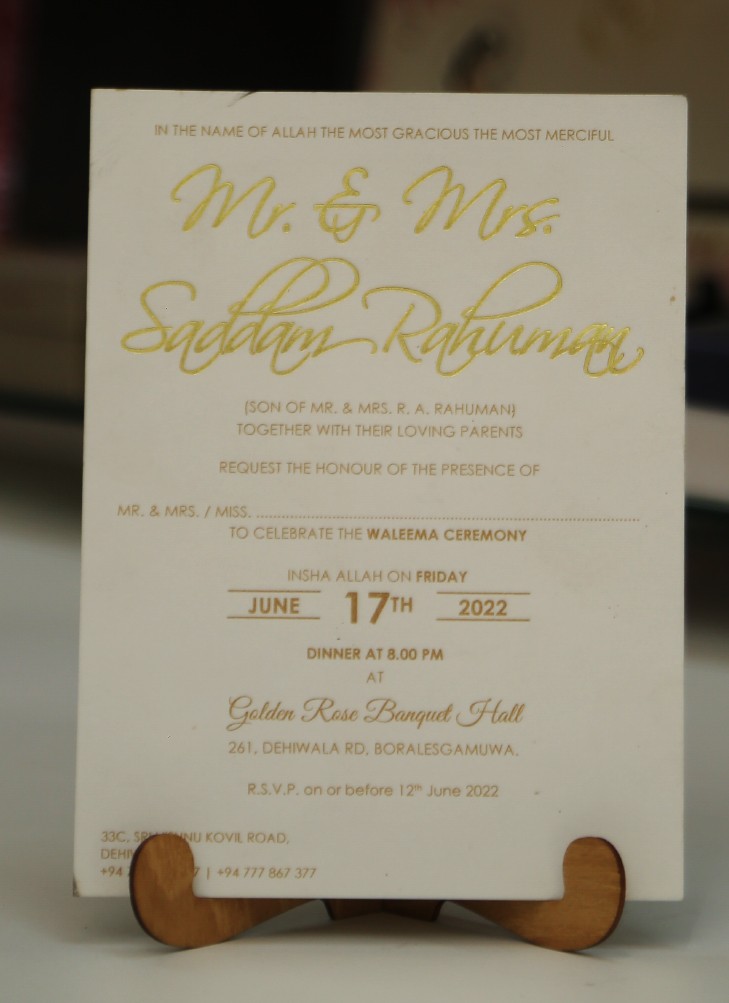 IN THE NAME OF ALLAH THE MOST GRACIOUS THE MOST MERCIFUL
Mr. & Mrs.
Saddam Rahuman
(SON OF MR. & MRS. R. A. RAHUMAN)
TOGETHER WITH THEIR LOVING PARENTS
REQUEST THE HONOUR OF THE PRESENCE OF
MR. & MRS. / MISS. ................................................................
TO CELEBRATE THE WALEEMA CEREMONY
INSHA ALLAH ON FRIDAY
JUNE 17TH 2022
DINNER AT 8.00 PM
AT
Golden Rose Banquet Hall
261, DEHIWALA RD, BORALESGAMUWA.
R.S.V.P. on or before 12th June 2022
33C, KOVIL ROAD,
+94 | +94 777 867 377